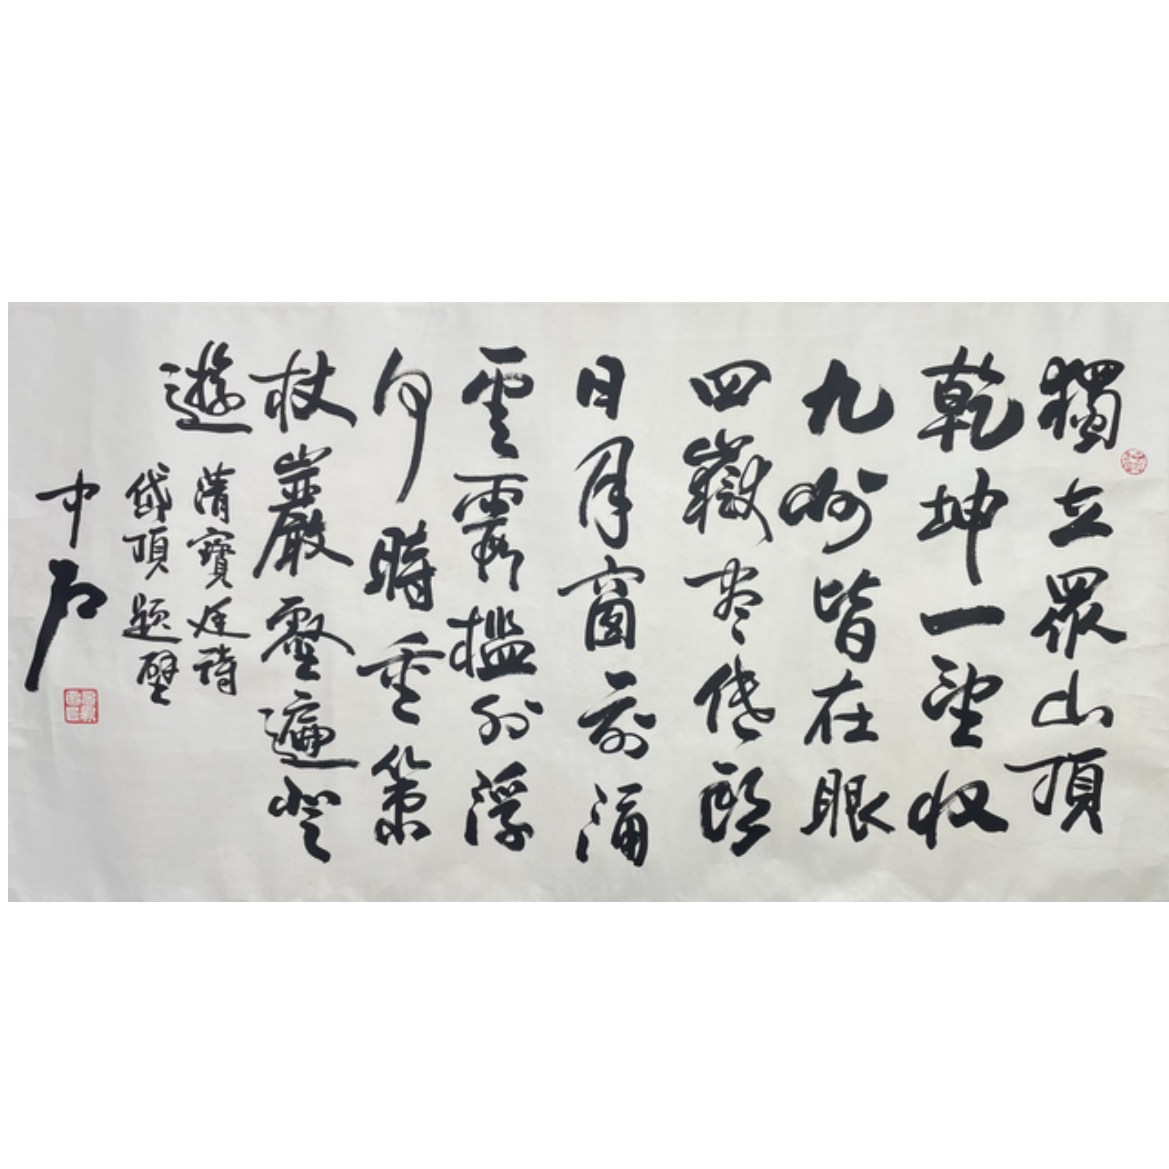 獨立眾山頂
乾坤一望收
九州皆在眼
四嶽尽低頭
日月窗前涌
雲霞檻外浮
何時重策
杖巖壑遍登
遊
清寶廷詩
岱頂題壁
中石